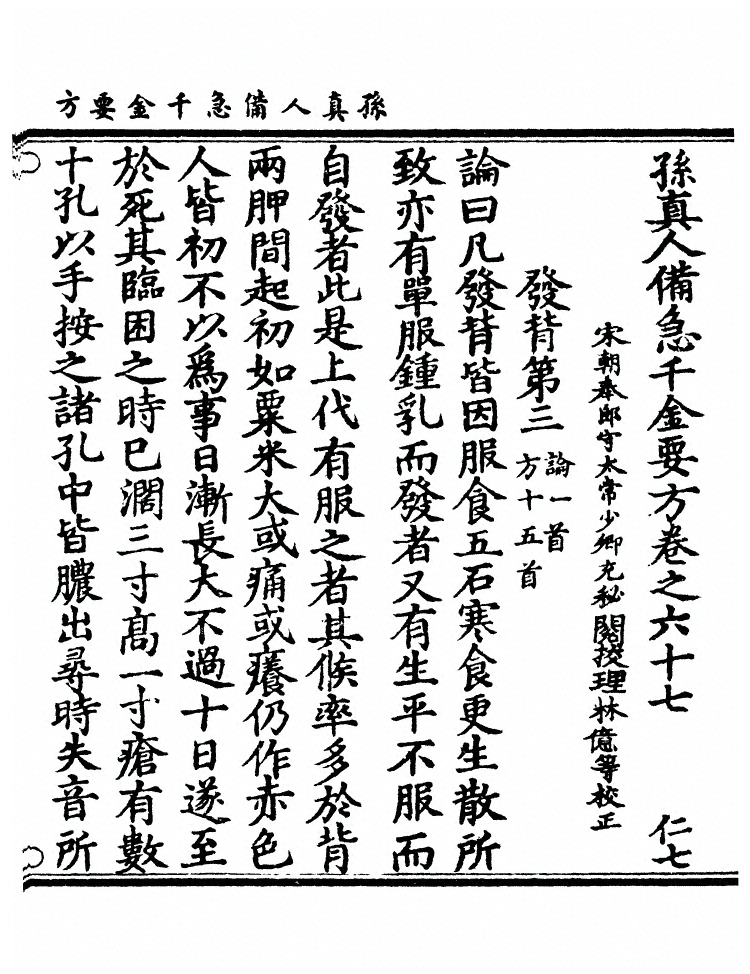 孫真人備急千金要方
孫真人備急千金要方卷之六十七 仁七
宋朝奉郎守太常少卿充秘閣挍理林億等校正
發背第三 論一首 方十五首
論曰凡發背皆因服食五石寒食更生散所
致亦有單服鍾乳而發者又有生平不服而
自發者此是上代有服之者其候率多於背
兩胛間起初如粟米大或痛或癢仍作赤色
人皆初不以爲事日漸長大不過十日遂至
於死其臨困之時已濶三寸高一寸瘡有數
十孔以手按之諸孔中皆膿出尋時失音所